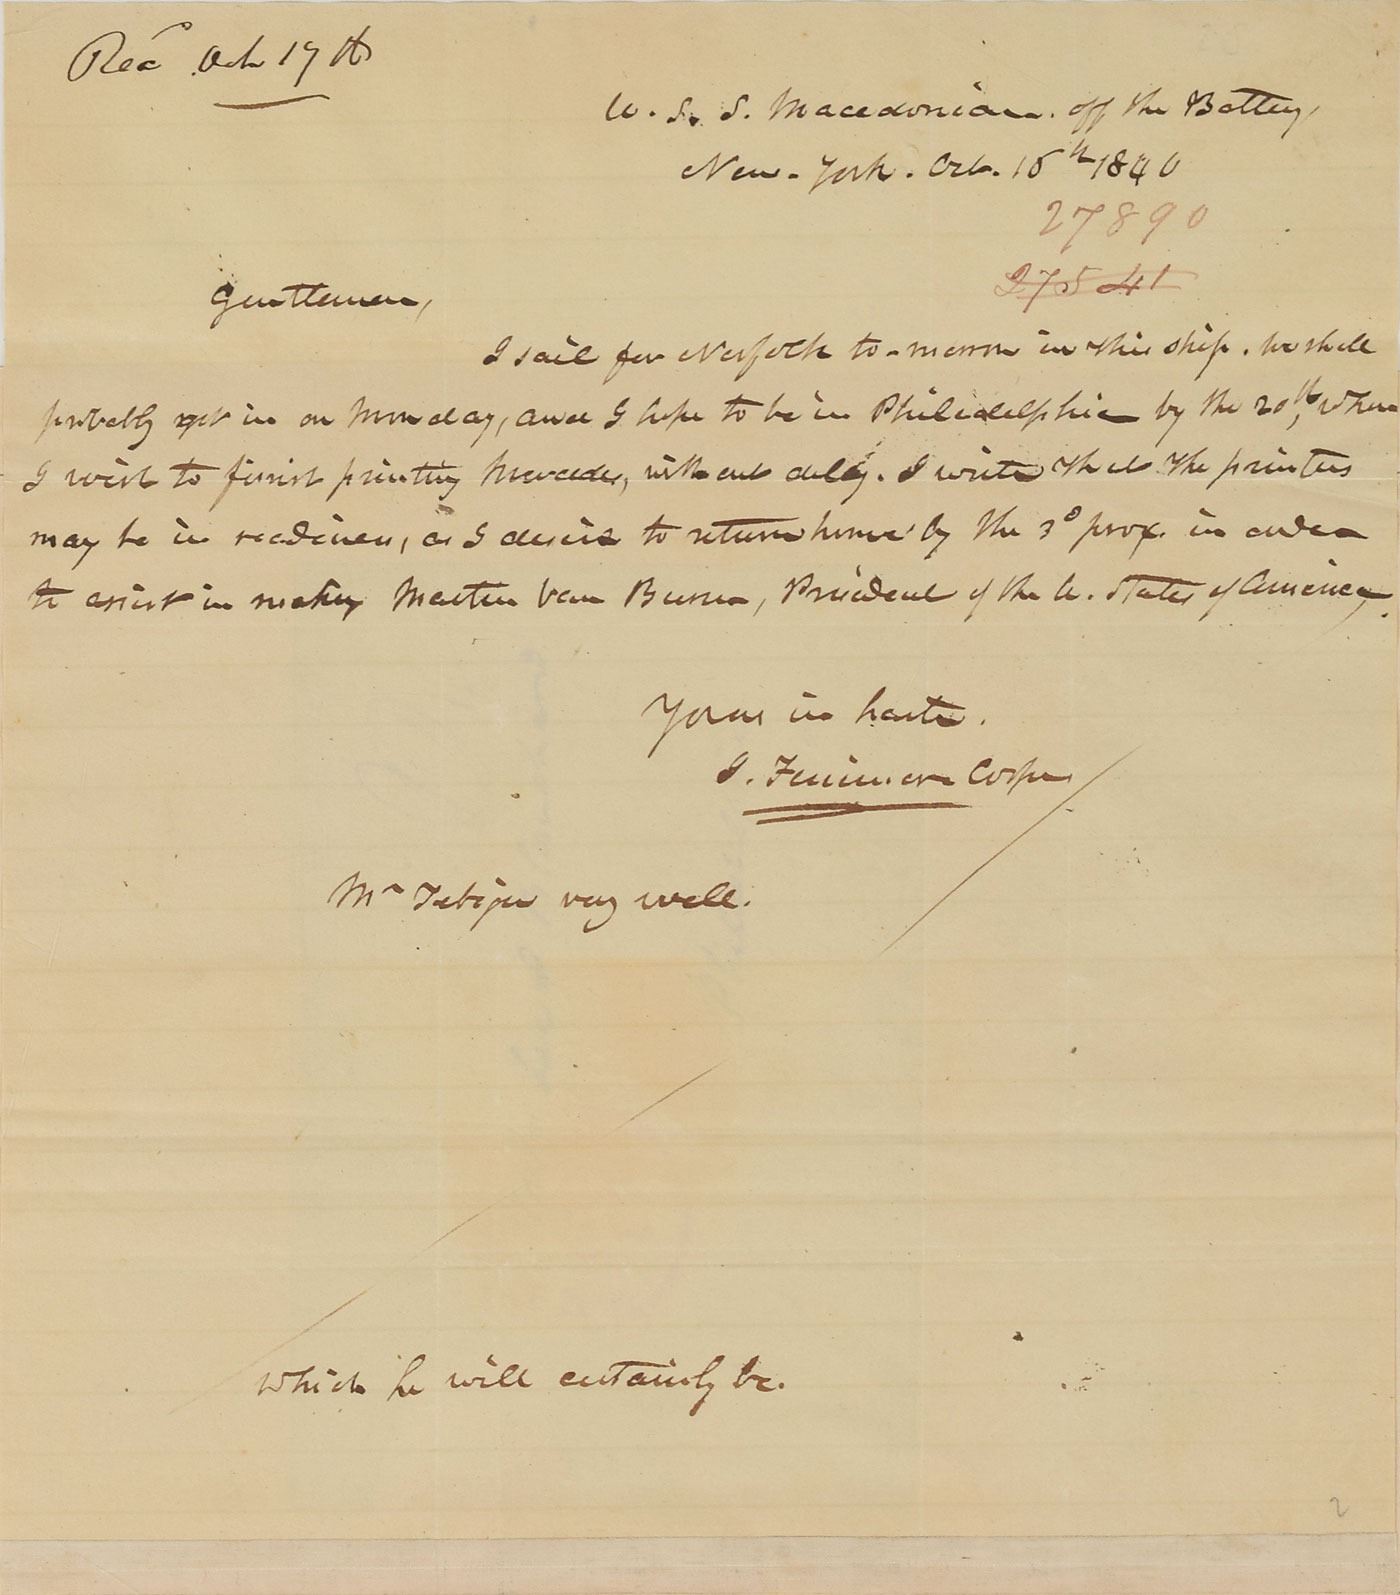 Recd Oct 19th
U. S. S. Macedonian. off the Battery,
New-York. Oct. 15th 1840
27890
27541
Gentlemen,
I sail for Norfolk to-morrow in this ship. We shall
probably get in on Monday, and I hope to be in Philadelphia by the 20th, when
I wish to finish printing Mercedes, without delay. I write that the printers
may be in readiness, as I desire to return home by the 3d prox. in order
to assist in making Martin Van Buren, President of the U. States of America,
Yours in haste.
J. Fenimore Cooper
Mr Tebijer very well.
which he will certainly be.
2